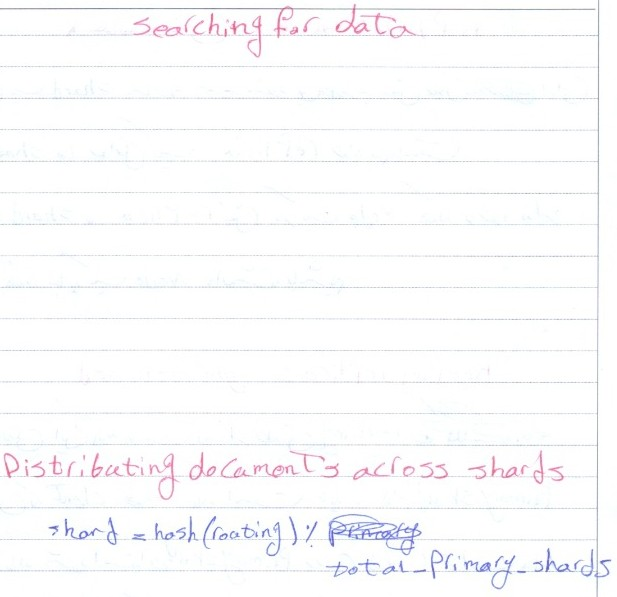 Searching for data
Distributing documents across shards
shard = hash(routing) %
total_primary_shards